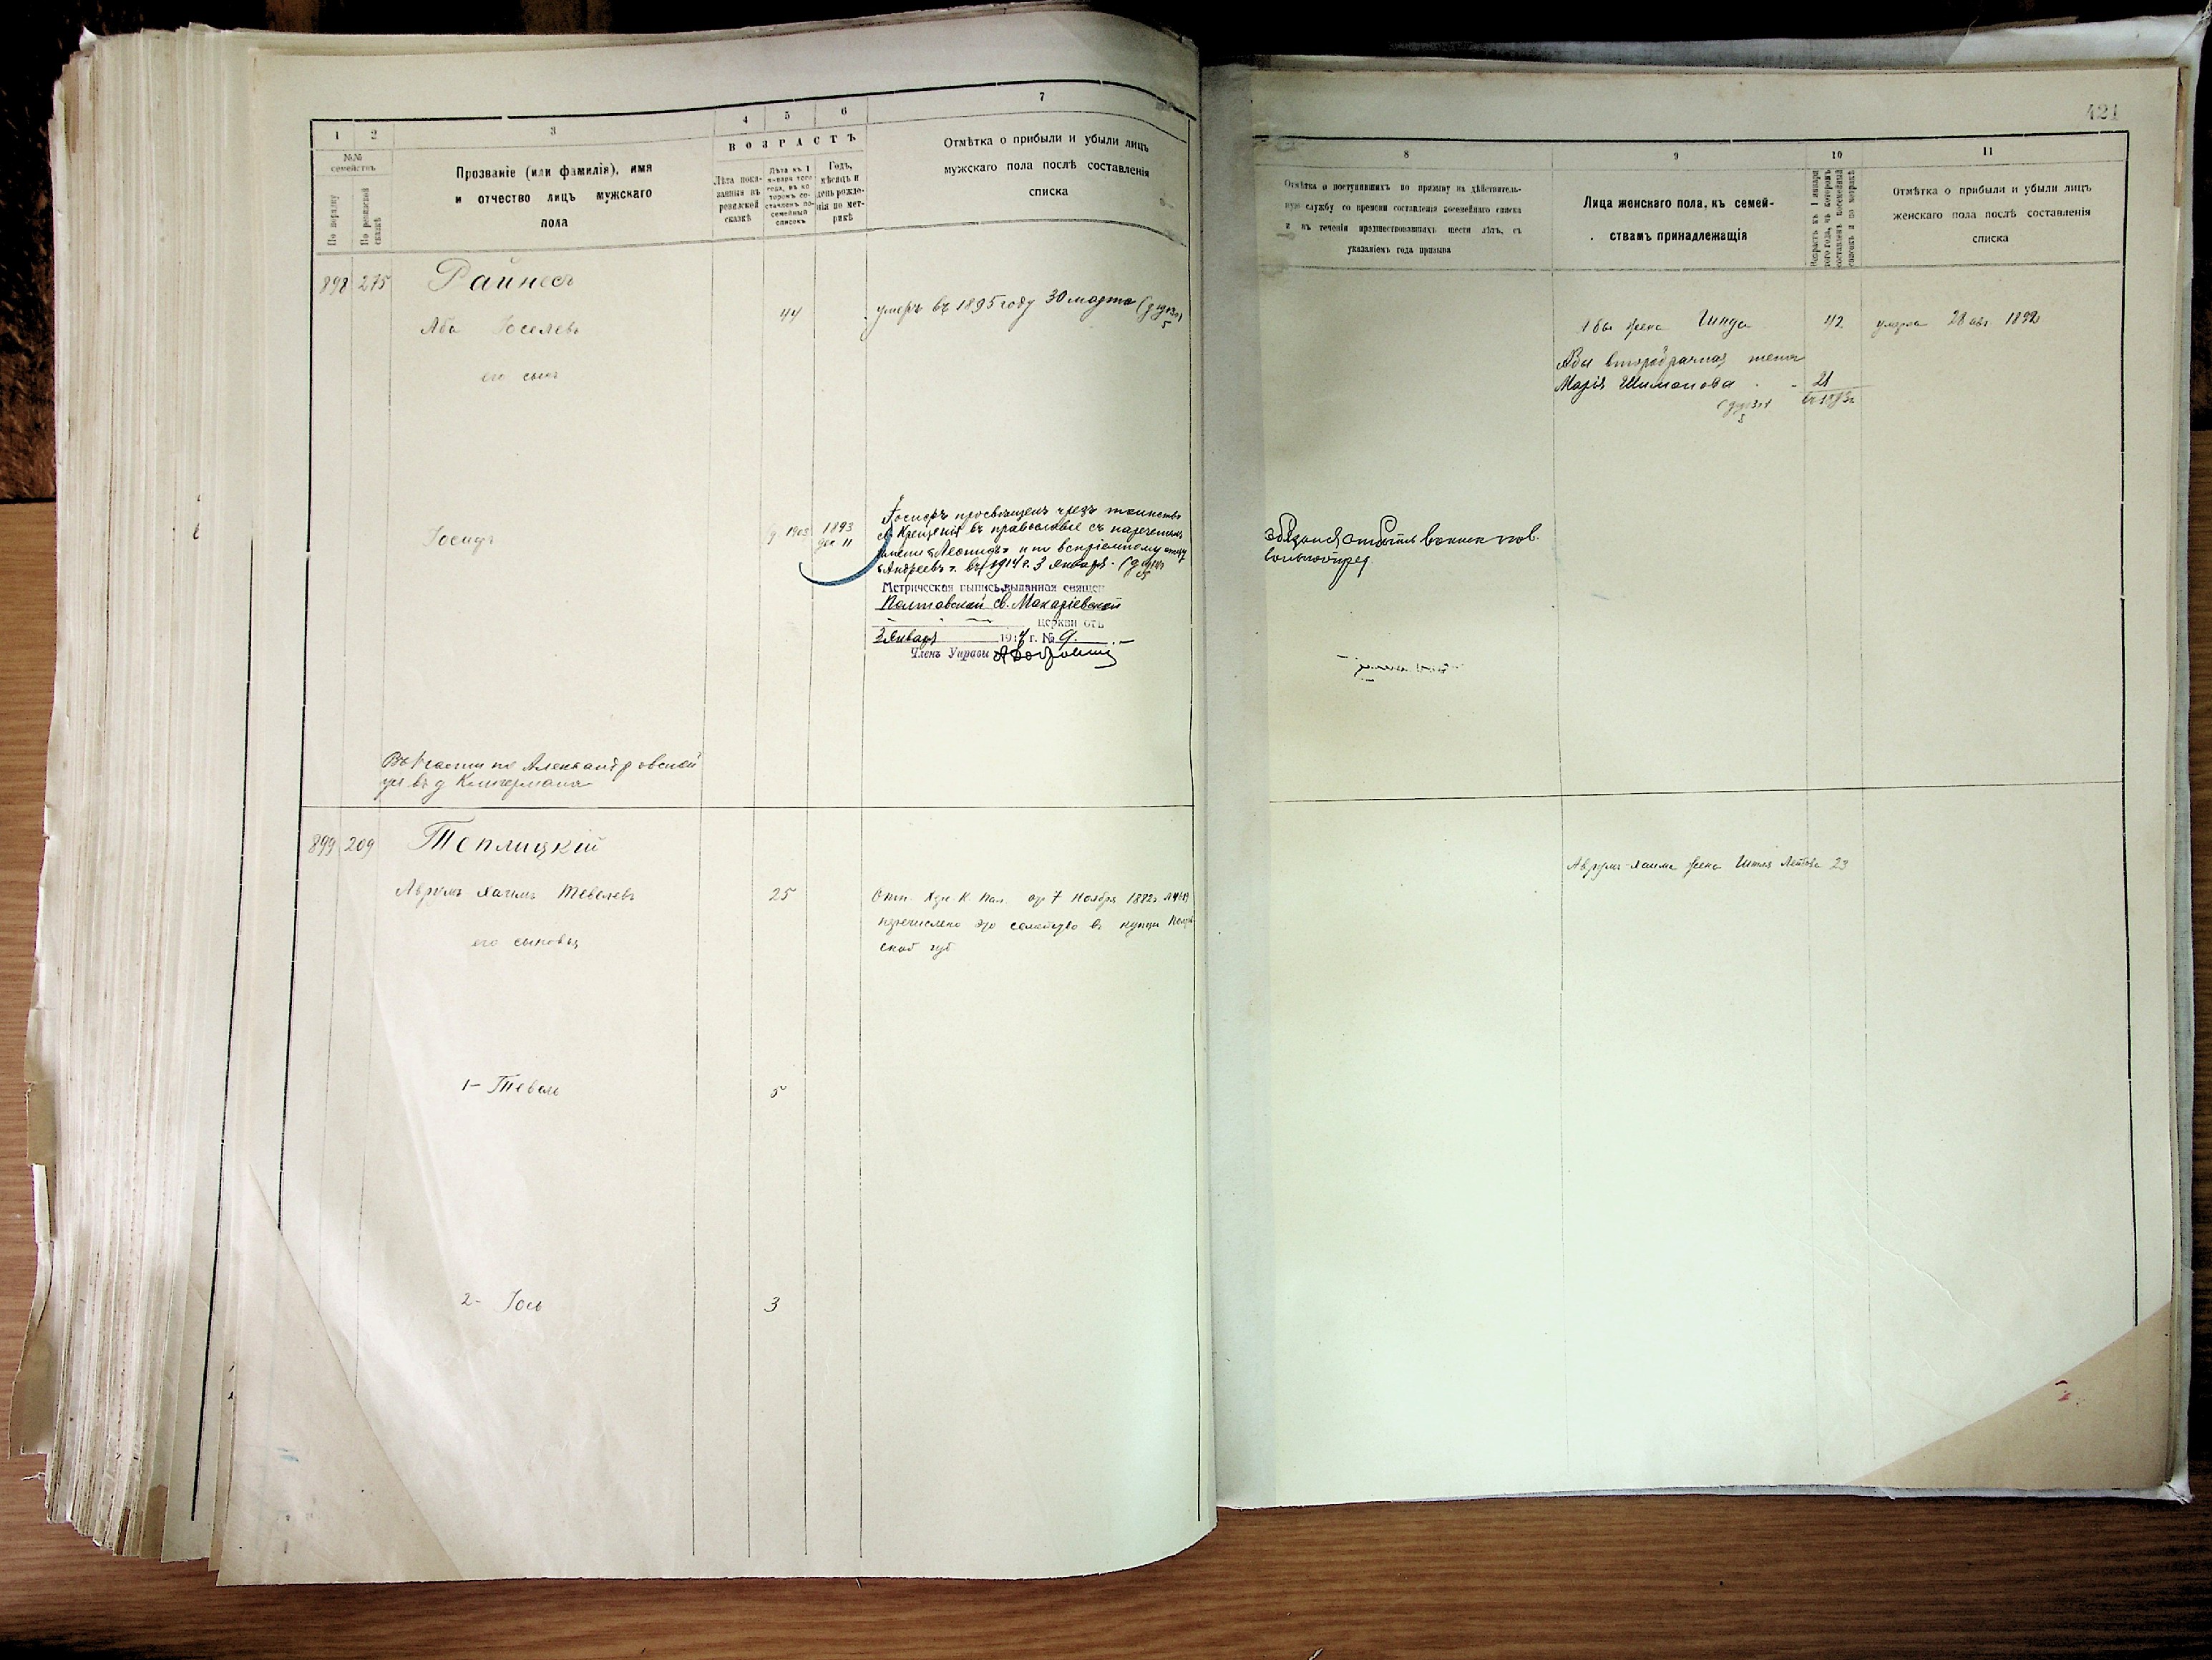 421
1 2 3 4 5 6 7
№№ семействъ
По порядку
По ревизской сказкѣ
Прозваніе (или фамилія), имя
и отчество лицъ мужскаго
пола
ВОЗРАСТЪ
Лѣта пока-
занныя въ
ревизской
сказкѣ
Лѣта къ 1
января того
года, въ ко
торомъ со-
ставленъ по-
семейный
списокъ
Годъ,
мѣсяцъ и
день рожде-
нія по мет-
рикѣ
Отмѣтка о прибыли и убыли лицъ
мужскаго пола послѣ составленія
списка
8 9 10 11
Отмѣтка о поступившихъ по призыву на дѣйствитель-
ную службу со времени составленія посемейнаго списка
и въ теченіи предшествовавшихъ шести лѣтъ, съ
указаніемъ года призыва
Лица женскаго пола, къ семей-
ствамъ принадлежащія
Возрастъ къ 1 января
того года, въ которомъ
составленъ посемейный
списокъ и по метрикѣ
Отмѣтка о прибыли и убыли лицъ
женскаго пола послѣ составленія
списка
898 275 Райнесъ
Аба Іоселевъ 44 умеръ въ 1895 году 30 марта
его сынъ
Абы жена Гинда 42 умерла 28 1892
Абы второбрачная жена
Марія Шимонова 21
Іосифъ 1903 1893 дек 11
Іосифъ просвѣщенъ чрезъ таинство
св. Крещенія въ православіе съ нареченіемъ
имени «Леонидъ» и по воспріемному отцу
«Андреевъ». въ 1914 г. 3 января.
Метрическая выпись, выданная священ
Полтавской св. Макаріевской
церкви отъ
3 Января 1914 г. № 9.
Членъ Управы
обязанъ отбыть воинск пов.
Въ 1 части по Александровской
ул въ д Клигермана
899 209 Теплицкій
Аврумъ Хаимъ Тевелевъ 25 7 Ноября 1882
перечислено это семейство въ купцы
ской губ
его сыновья
Аврумъ-Хаима жена 23
1- Тевель 5
2- Іось 3